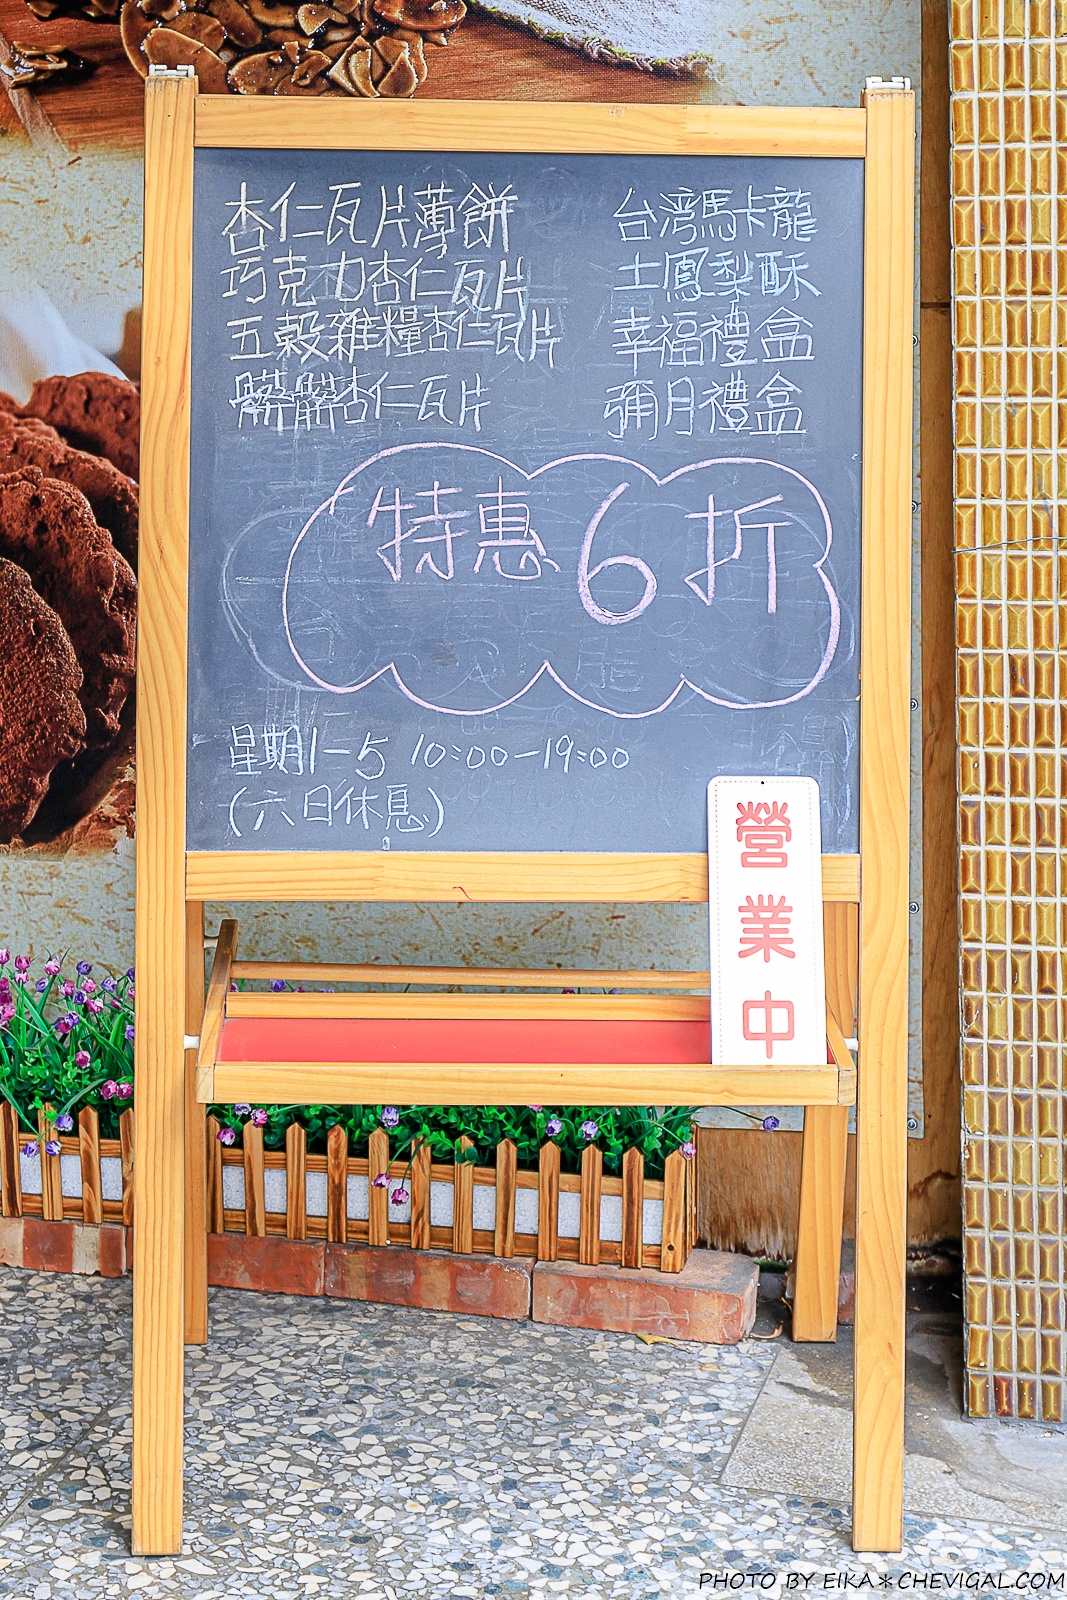 杏仁瓦片薄餅
巧克力杏仁瓦片
五穀雜糧杏仁瓦片
髒髒杏仁瓦片
台湾馬卡龍
土鳳梨酥
幸福禮盒
彌月禮盒
特惠6折
星期1-5 10:00-19:00
(六日休息)
營業中
PHOTO BY EIKA＊CHEVIGAL.COM